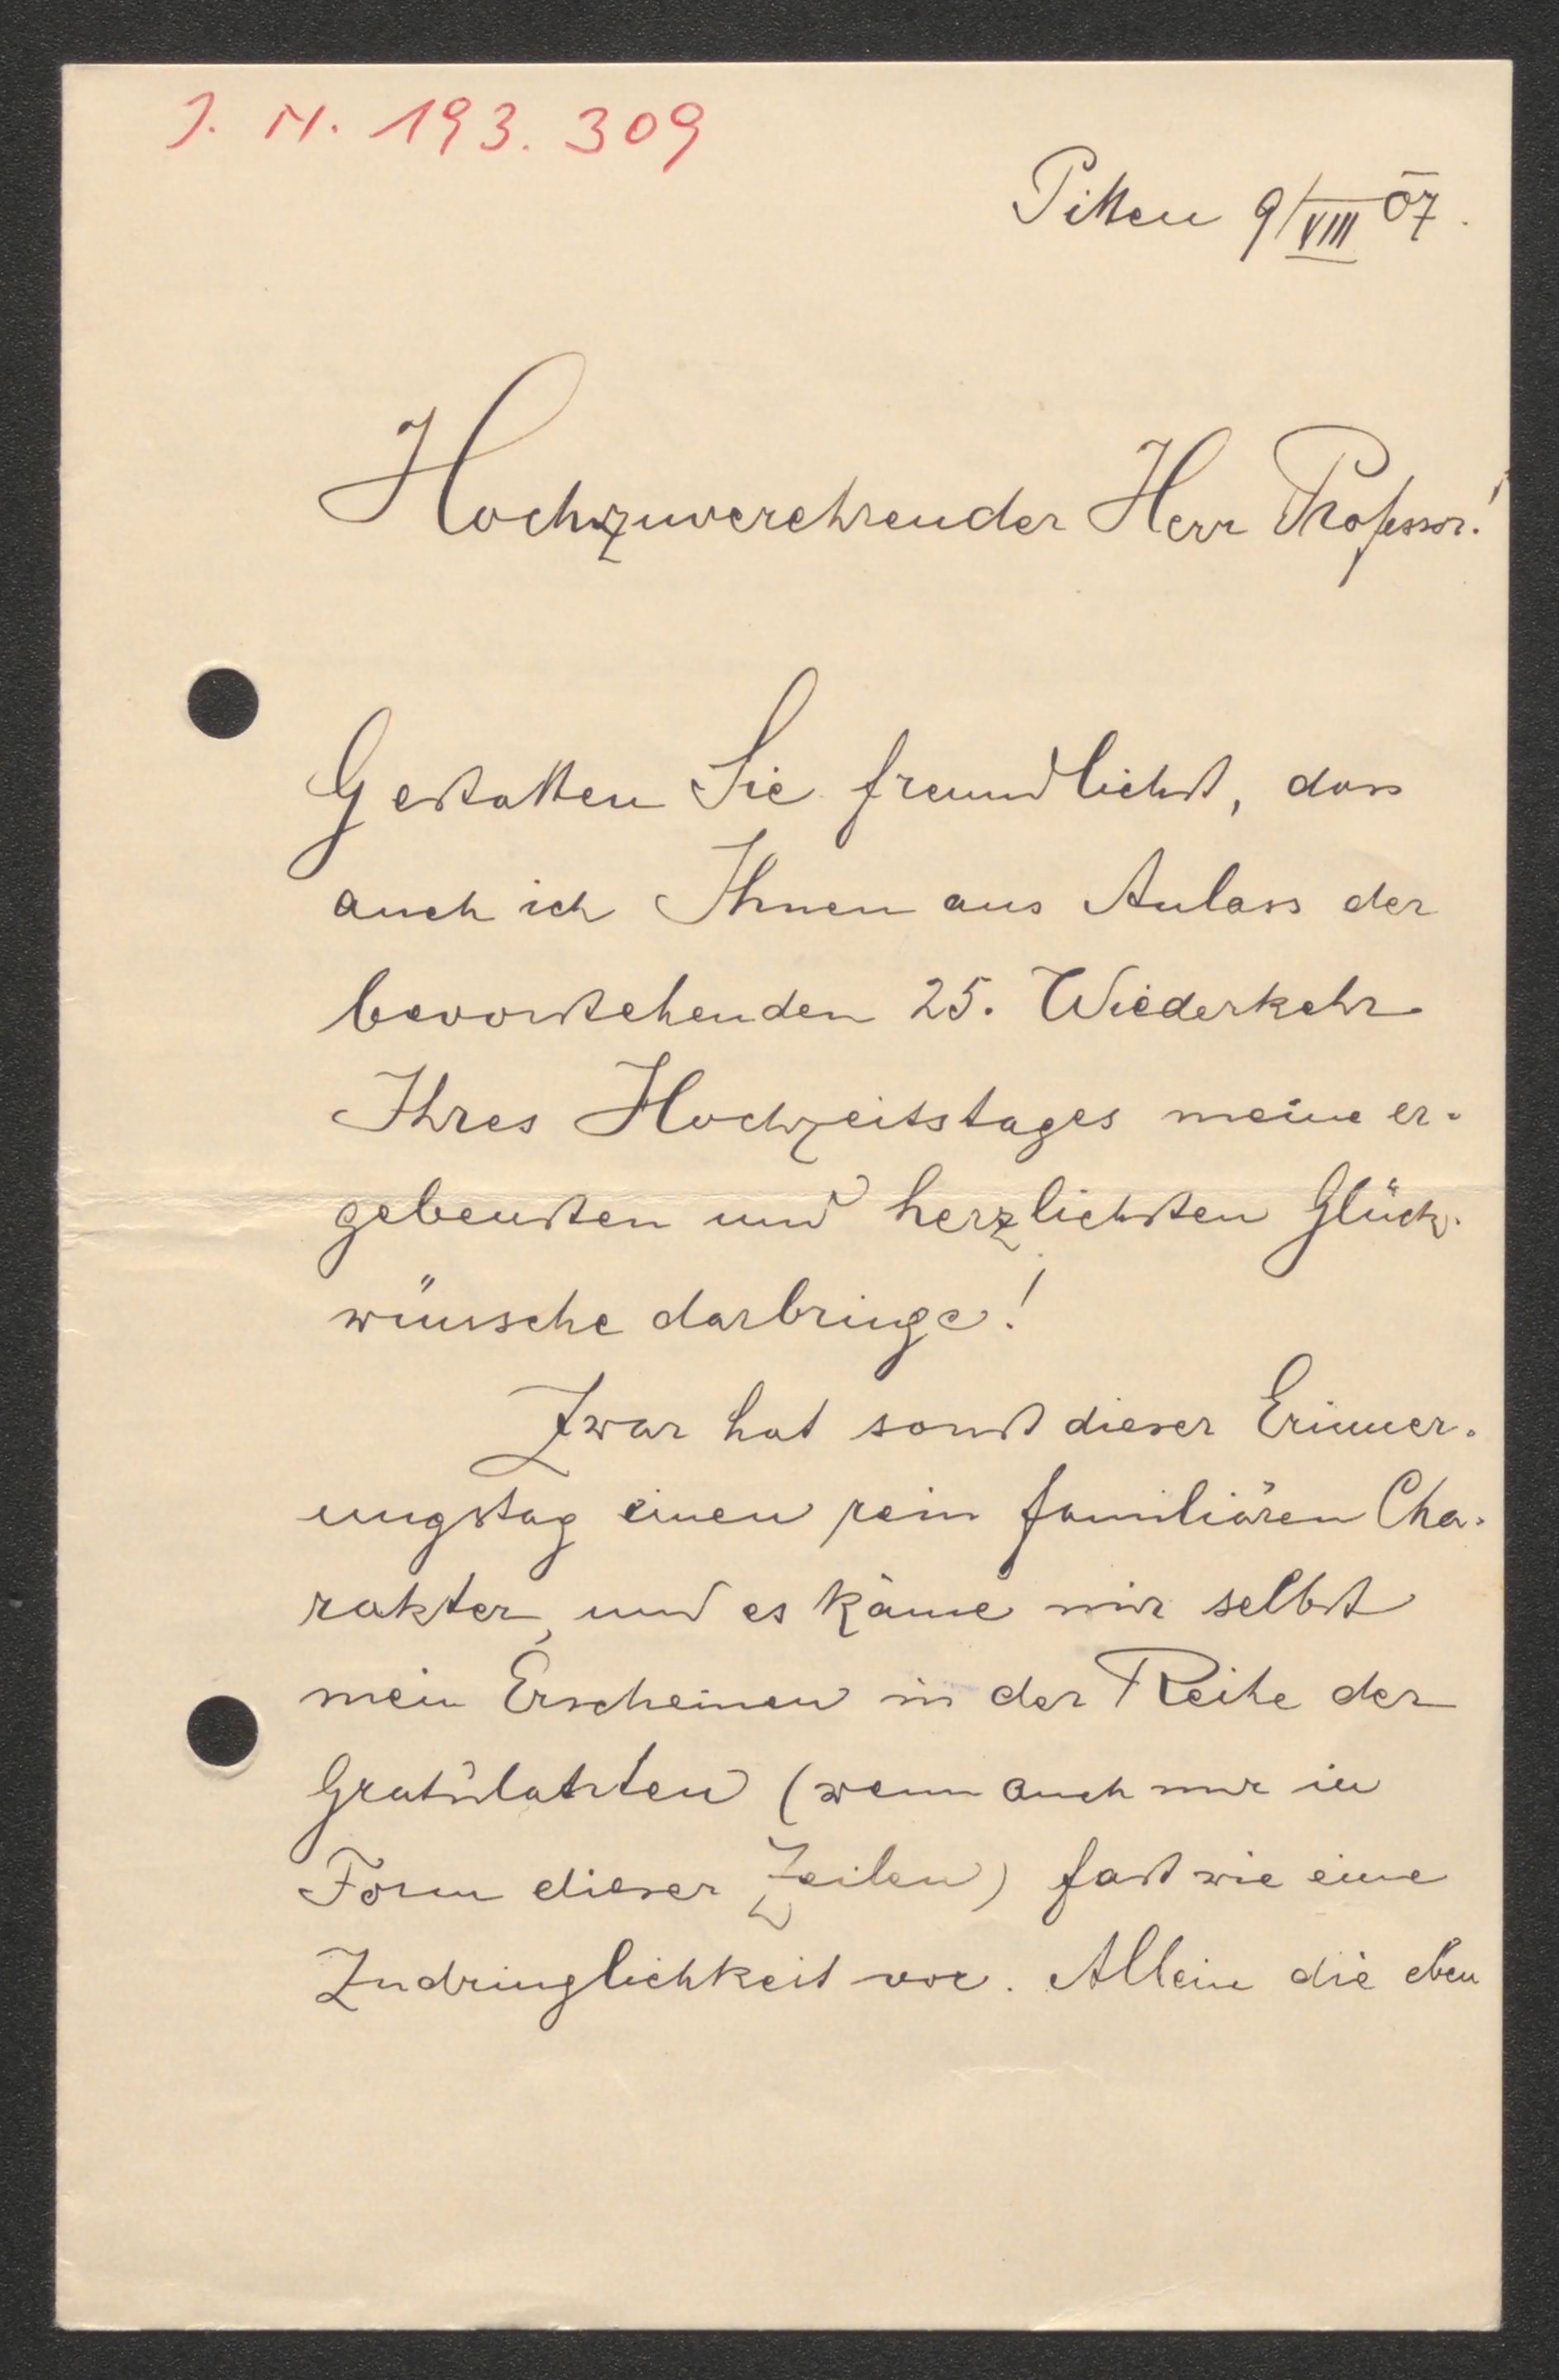 J. N. 193.309
Pitten 9/VIII 07.
Hochzuverehrender Herr Professor!
Gestatten Sie freundlichst, dass
auch ich Ihnen aus Anlass der
bevorstehenden 25. Wiederkehr
Ihres Hochzeitstages meine er-
gebensten und herzlichsten Glück-
wünsche darbringe!
Zwar hat sonst dieser Erinner-
ungstag einen rein familiären Cha-
rakter, und es käme mir selbst
mein Erscheinen in der Reihe der
Gratulanten (wenn auch nur in
Form dieser Zeilen) fast wie eine
Zudringlichkeit vor. Allein die eben